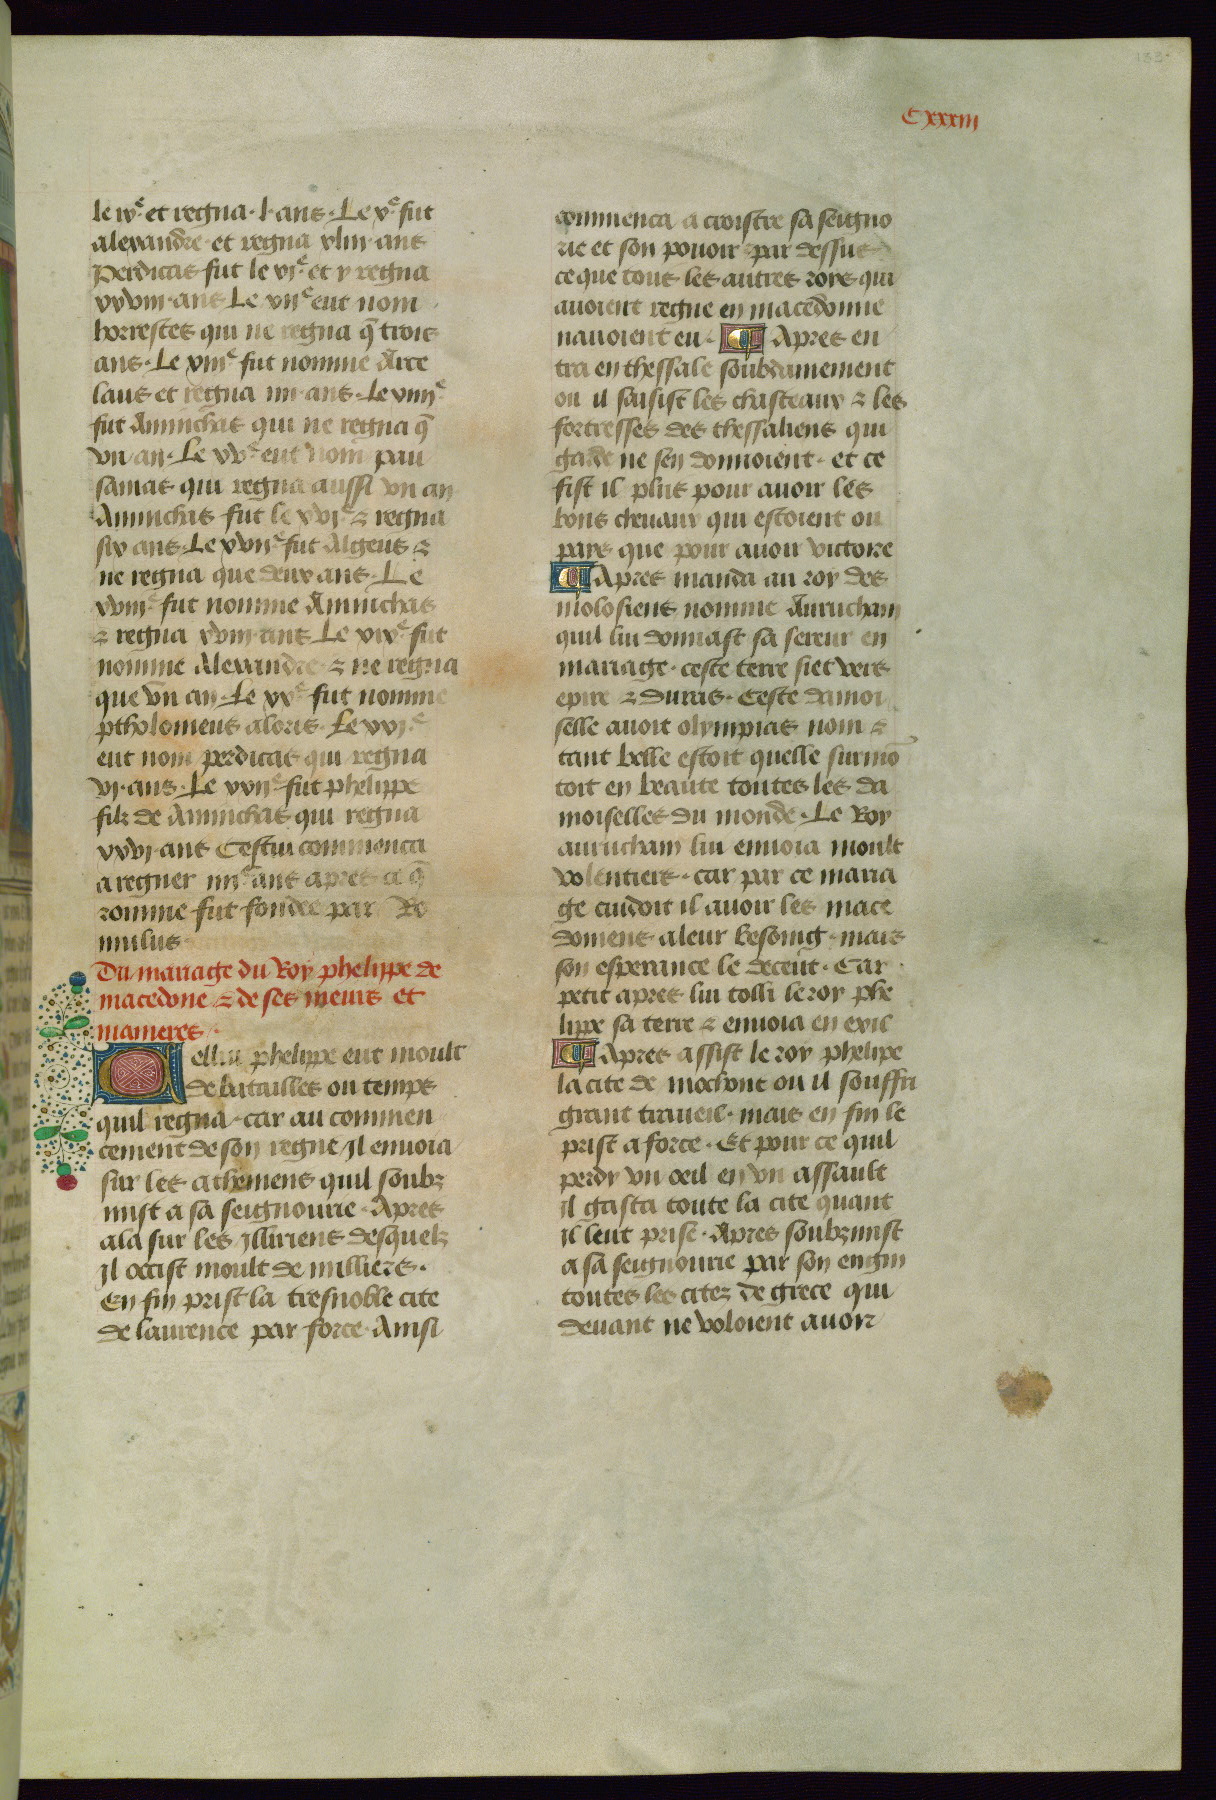 133
Cxxxiii
le ix.e et regna .l. ans. Le x.e fut
alexandre et regna xliii ans
Perdicas fut le xi.e et y regna
xxviii ans Le xii.e eut nom
horrestes qui ne regna q̄ trois
ans. Le xiii.e fut nomme Arce
laus et regna iiii ans. Le xiiii.e
fut Amichas qui ne regna q̄
vn an. Le xv.e eut nom pau
sanias qui regna aussi vn an
Amichas fut le xvi.e ⁊ regna
six ans. Le xvii.e fut Algeus ⁊
ne regna que deux ans. Le
xviii.e fut nomme Amichas
⁊ regna xviii ans Le xix.e fut
nomme Alexandre ⁊ ne regna
que vn an. Le xx.e fut nomme
ptholomeus aloris. Le xxi.e
eut nom perdicas qui regna
vi. ans. Le xxii.e fut phelippe
filz de Amichas qui regna
xxvi. ans Cestui commenca
a regner iiii.c ans apres ce q̄
romme fut fondee par Ro
mulus
Du mariage du Roy phelippe de
macedone ⁊ de ses meurs et
manieres
Cellui phelippe eut moult
de batailles ou temps
quil regna. car au commen
cement de son regne Il enuoia
sur les atheniens quil soubz
mist a sa seignourie. Apres
ala sur les Illiriens desquelz
Il occist moult de milliers.
En fin prist la tresnoble cite
de laurence par force. Ainsi
commenca a croistre sa seigno
rie et son pouoir par dessus
ce que tous les autres roys qui
auoient regne en macedonne
nauoient eu. Apres en
tra en thessale soubdainement
ou il saisist les chasteaux ⁊ les
fortresses des thessaliens qui
garde ne sen donnoient. et ce
fist il plus pour auoir les
bons cheuaux qui estoient ou
pays que pour auoir victoire
Apres manda au roy des
molosiens nomme Aurucham
quil lui donnast sa sereur en
mariage. ceste terre siet vers
epire ⁊ duras. Ceste damoi
selle auoit olympias nom ⁊
tant belle estoit quelle surmō
toit en beaute toutes les da
moiselles du monde. Le Roy
aurucham lui enuoia moult
volentiers. car par ce maria
ge cuidoit il auoir les mace
doniens a leur besoing. mais
son esperance le deceut. Car
petit apres lui tolli le roy phe
lippe sa terre ⁊ enuoia en exil
Apres assist le roy phelipe
la cite de mochone ou il souffri
grant traueil. mais en fin le
prist a force. Et pour ce quil
perdy vn oeil en vn assault
il gasta toute la cite quant
il leut prise. Apres soubzmist
a sa seignourie par son engin
toutes les citez de grece qui
deuant ne voloient auoir